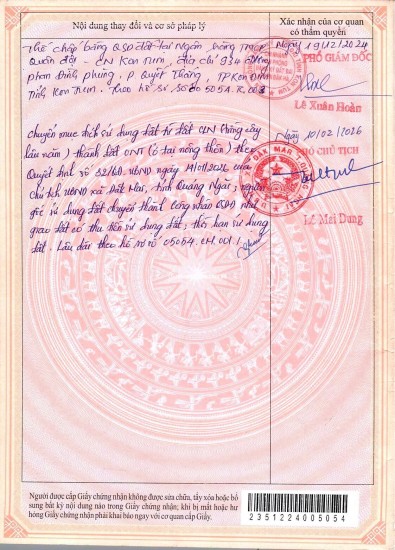 Nội dung thay đổi và cơ sở pháp lý
Xác nhận của cơ quan
có thẩm quyền
Thế chấp bằng QSD đất tại Ngân hàng TMCP
Quân đội - CN Kon Tum, địa chỉ
Phan Đình Phùng, P Quyết Thắng, TP Kon Tum
Tỉnh Kon Tum. Theo hồ sơ số 05054.
Ngày 19/12/2024
PHÓ GIÁM ĐỐC
Lê Xuân Hoàn
Chuyển mục đích sử dụng đất từ đất CLN (trồng cây
lâu năm) thành đất ONT (ở tại nông thôn) theo
Quyết định số UBND ngày của
Chủ tịch UBND xã Đăk Mar, tỉnh Quảng Ngãi; nguồn
gốc sử dụng đất chuyển thành công nhận QSD như
giao đất có thu tiền sử dụng đất; thời hạn sử dụng
đất. Lâu dài theo hồ sơ số 05054.CM.001.
Ngày 10/02/2026
CHỦ TỊCH
Lê Mai Dung
Người được cấp Giấy chứng nhận không được sửa chữa, tẩy xóa hoặc bổ
sung bất kỳ nội dung nào trong Giấy chứng nhận; khi bị mất hoặc hư
hỏng Giấy chứng nhận phải khai báo ngay với cơ quan cấp Giấy.
2351224005054